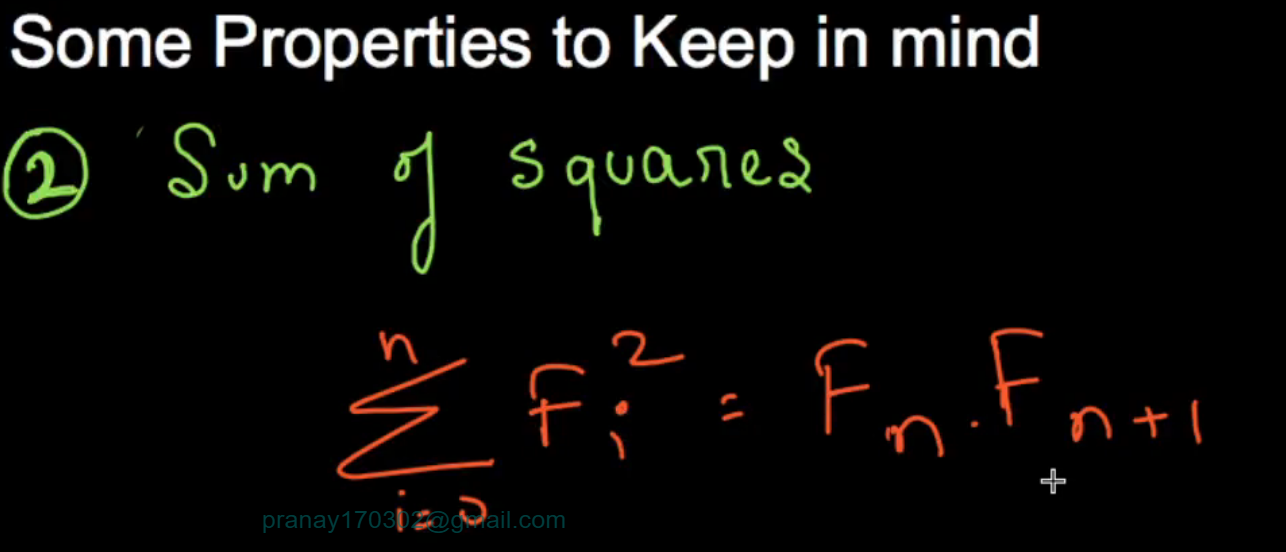 Some Properties to Keep in mind
② Sum of squares
n
∑ Fᵢ² = Fₙ · Fₙ₊₁
i=0
pranay170302@gmail.com